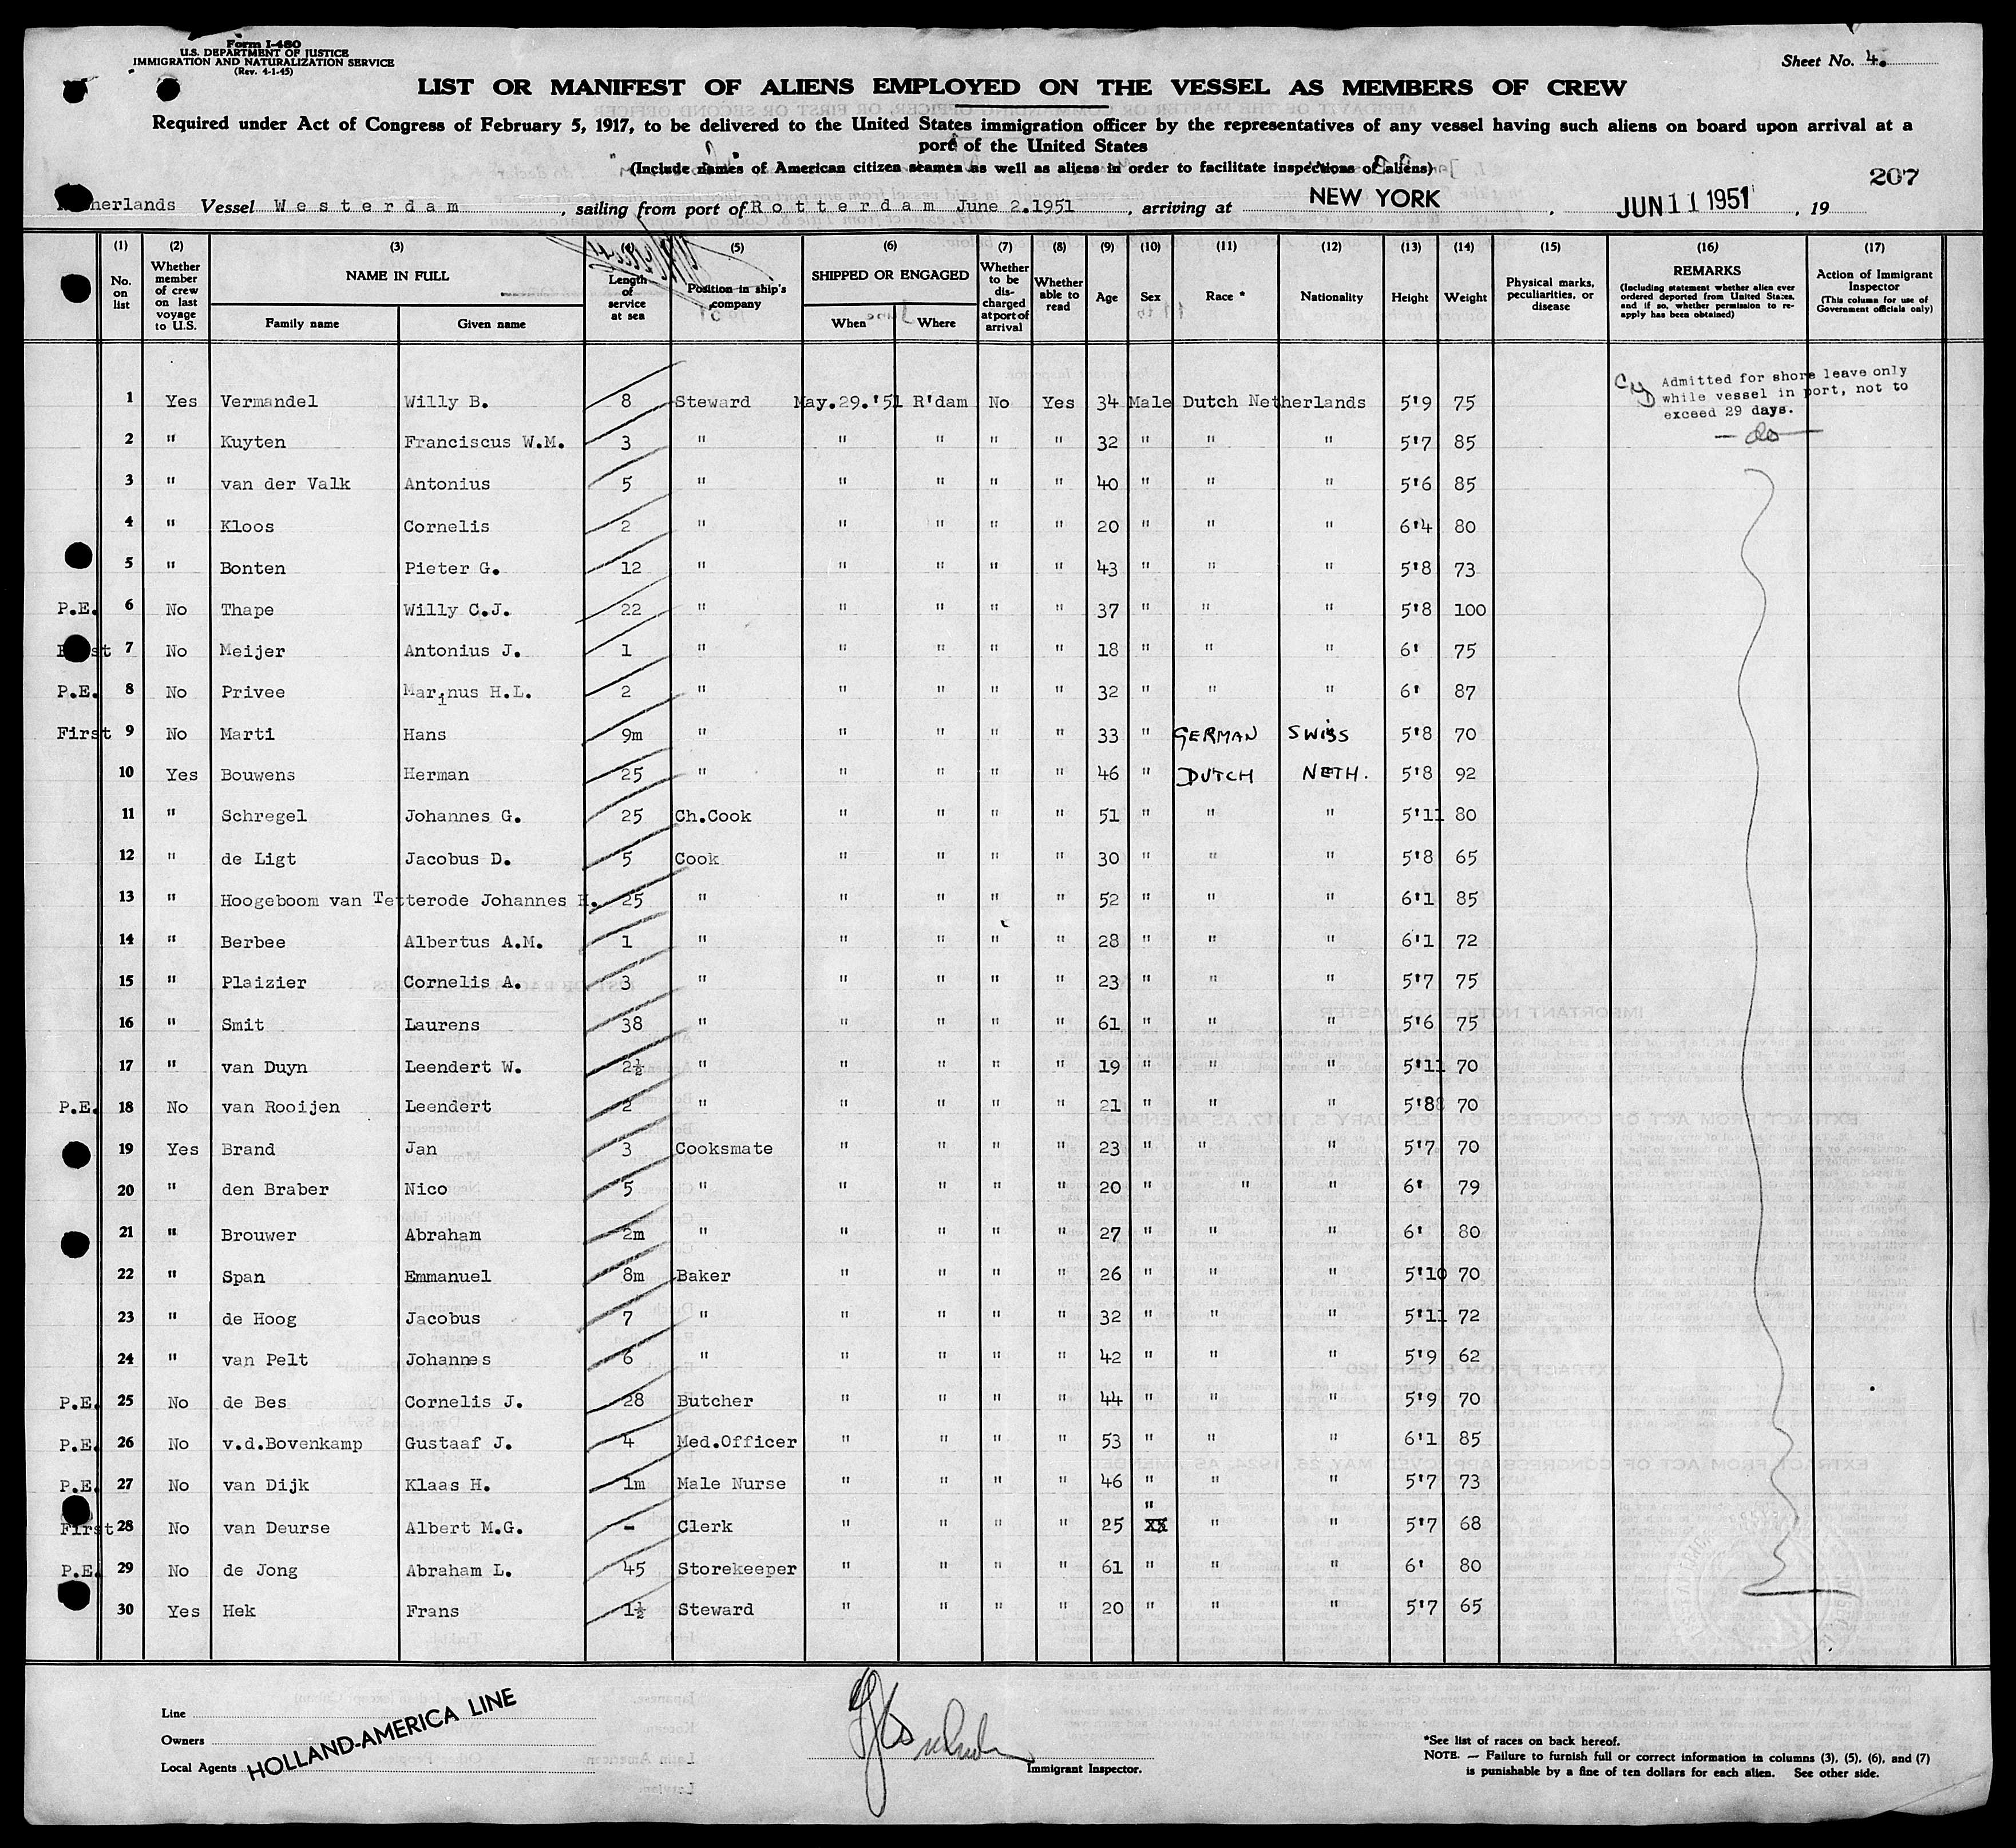 Form I-480
U.S. DEPARTMENT OF JUSTICE
IMMIGRATION AND NATURALIZATION SERVICE
(Rev. 4-1-45)
Sheet No. 4.
LIST OR MANIFEST OF ALIENS EMPLOYED ON THE VESSEL AS MEMBERS OF CREW
Required under Act of Congress of February 5, 1917, to be delivered to the United States immigration officer by the representatives of any vessel having such aliens on board upon arrival at a
port of the United States
(Include names of American citizen seamen as well as aliens in order to facilitate inspections of aliens)
207
herlands Vessel Westerdam, sailing from port of Rotterdam June 2.1951, arriving at NEW YORK, JUN 11 1951, 19
(1) (2) (3) (4) (5) (6) (7) (8) (9) (10) (11) (12) (13) (14) (15) (16) (17)
No. on list
Whether member of crew on last voyage to U.S.
NAME IN FULL
Family name
Given name
Length of service at sea
Position in ship's company
SHIPPED OR ENGAGED
When
Where
Whether to be discharged at port of arrival
Whether able to read
Age
Sex
Race *
Nationality
Height
Weight
Physical marks, peculiarities, or disease
REMARKS
(Including statement whether alien ever ordered deported from United States, and if so, whether permission to re-apply has been obtained)
Action of Immigrant Inspector
(This column for use of Government officials only)
Admitted for shore leave only
while vessel in port, not to
exceed 29 days.
1 Yes Vermandel Willy B. 8 Steward May.29.'51 R'dam No Yes 34 Male Dutch Netherlands 5'9 75
2 " Kuyten Franciscus W.M. 3 " " " " " 32 " " " 5'7 85 — do —
3 " van der Valk Antonius 5 " " " " " 40 " " " 5'6 85
4 " Kloos Cornelis 2 " " " " " 20 " " " 6'4 80
5 " Bonten Pieter G. 12 " " " " " 43 " " " 5'8 73
P.E. 6 No Thape Willy C.J. 22 " " " " " 37 " " " 5'8 100
7 No Meijer Antonius J. 1 " " " " " 18 " " " 6' 75
P.E. 8 No Privee Marinus H.L. 2 " " " " " 32 " " " 6' 87
First 9 No Marti Hans 9m " " " " " 33 " GERMAN SWISS 5'8 70
10 Yes Bouwens Herman 25 " " " " " 46 " DUTCH NETH. 5'8 92
11 " Schregel Johannes G. 25 Ch.Cook " " " " 51 " " " 5'11 80
12 " de Ligt Jacobus D. 5 Cook " " " " 30 " " " 5'8 65
13 " Hoogeboom van Tetterode Johannes H. 25 " " " " " 52 " " " 6'1 85
14 " Berbee Albertus A.M. 1 " " " " " 28 " " " 6'1 72
15 " Plaizier Cornelis A. 3 " " " " " 23 " " " 5'7 75
16 " Smit Laurens 38 " " " " " 61 " " " 5'6 75
17 " van Duyn Leendert W. 2½ " " " " " 19 " " " 5'11 70
P.E. 18 No van Rooijen Leendert 2 " " " " " 21 " " " 5'8 70
19 Yes Brand Jan 3 Cooksmate " " " " 23 " " " 5'7 70
20 " den Braber Nico 5 " " " " " 20 " " " 6' 79
21 " Brouwer Abraham 2m " " " " " 27 " " " 6' 80
22 " Span Emmanuel 8m Baker " " " " 26 " " " 5'10 70
23 " de Hoog Jacobus 7 " " " " " 32 " " " 5'11 72
24 " van Pelt Johannes 6 " " " " " 42 " " " 5'9 62
P.E. 25 No de Bes Cornelis J. 28 Butcher " " " " 44 " " " 5'9 70
P.E. 26 No v.d.Bovenkamp Gustaaf J. 4 Med.Officer " " " " 53 " " " 6'1 85
P.E. 27 No van Dijk Klaas H. 1m Male Nurse " " " " 46 " " " 5'7 73
First 28 No van Deurse Albert M.G. - Clerk " " " " 25 " " " 5'7 68
P.E. 29 No de Jong Abraham L. 45 Storekeeper " " " " 61 " " " 6' 80
30 Yes Hek Frans 1½ Steward " " " " 20 " " " 5'7 65
Line
Owners
Local Agents
HOLLAND-AMERICA LINE
Immigrant Inspector.
*See list of races on back hereof.
NOTE. — Failure to furnish full or correct information in columns (3), (5), (6), and (7)
is punishable by a fine of ten dollars for each alien. See other side.